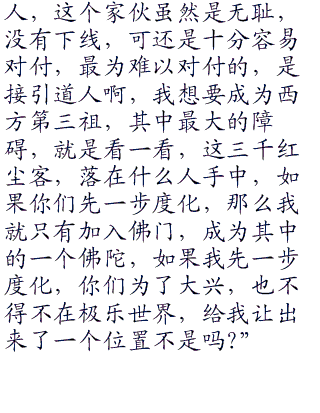 人，这个家伙虽然是无耻，
没有下线，可还是十分容易
对付，最为难以对付的，是
接引道人啊，我想要成为西
方第三祖，其中最大的障
碍，就是看一看，这三千红
尘客，落在什么人手中，如
果你们先一步度化，那么我
就只有加入佛门，成为其中
的一个佛陀，如果我先一步
度化，你们为了大兴，也不
得不在极乐世界，给我让出
来了一个位置不是吗?”